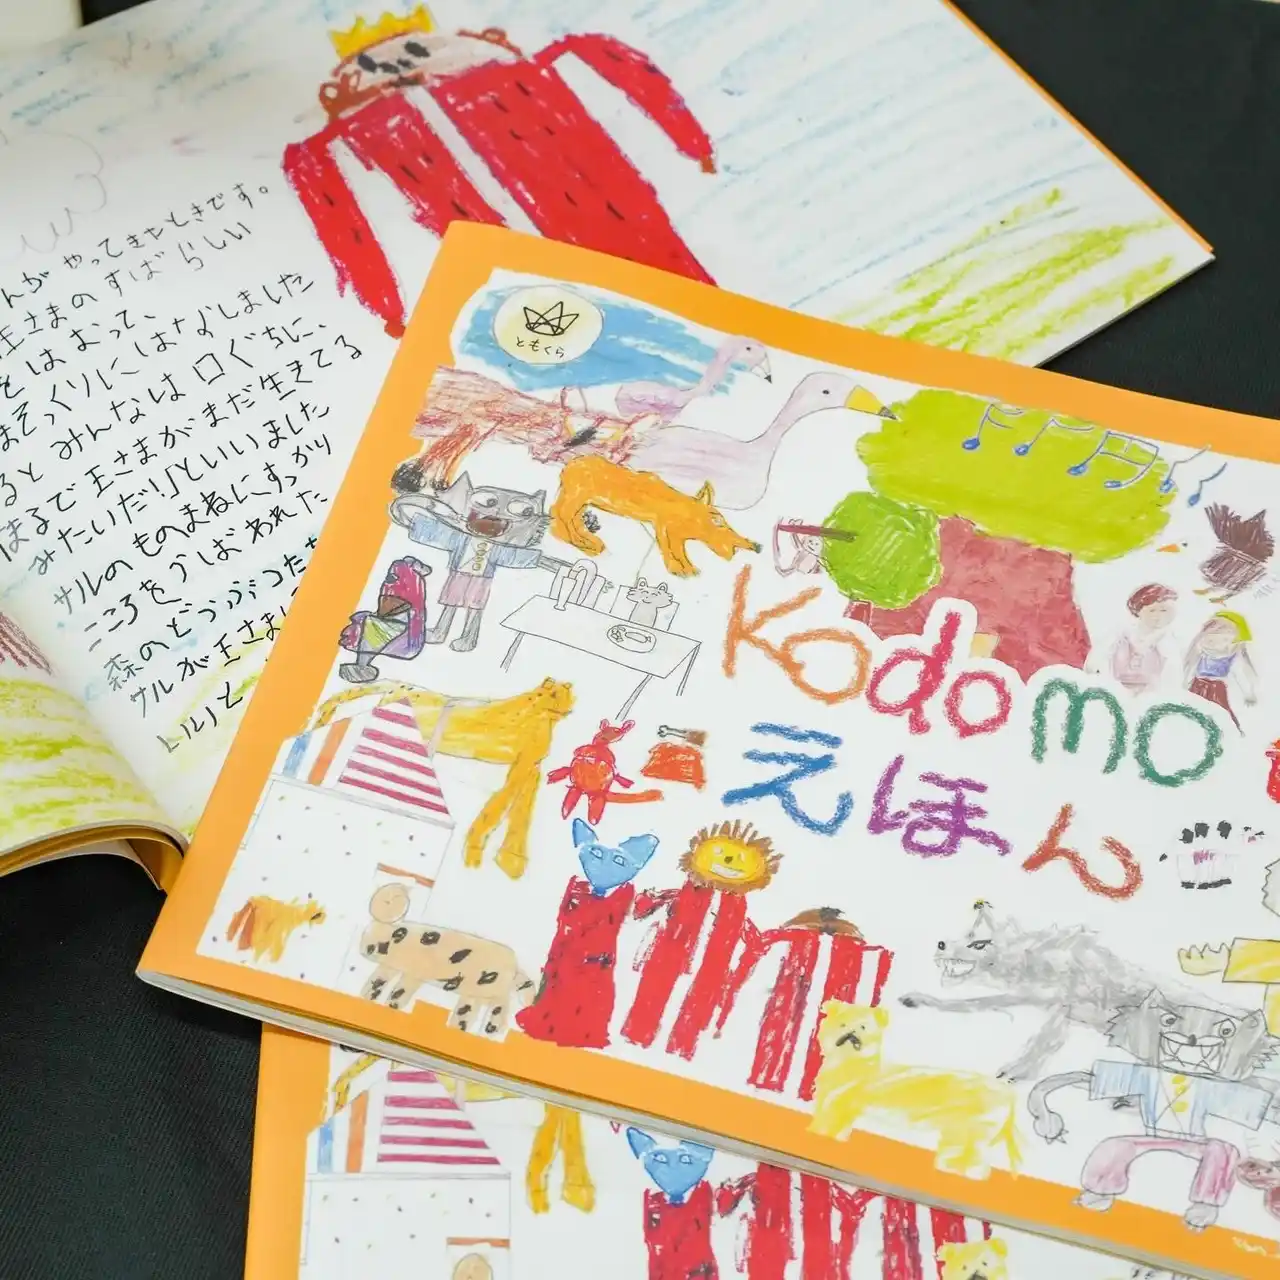 んが やってきたときです。
王さまの すばらしい
をはおって、
まそっくりに はなしました
ると みんなは 口ぐちに、
まるで 王さまが まだ 生きてる
みたいだ!」といいました
サルの ものまねに すっかり
こころを うばわれた
森の どうぶつた
サルが 王さま
いい」と
ともくら
Kodomo
えほん